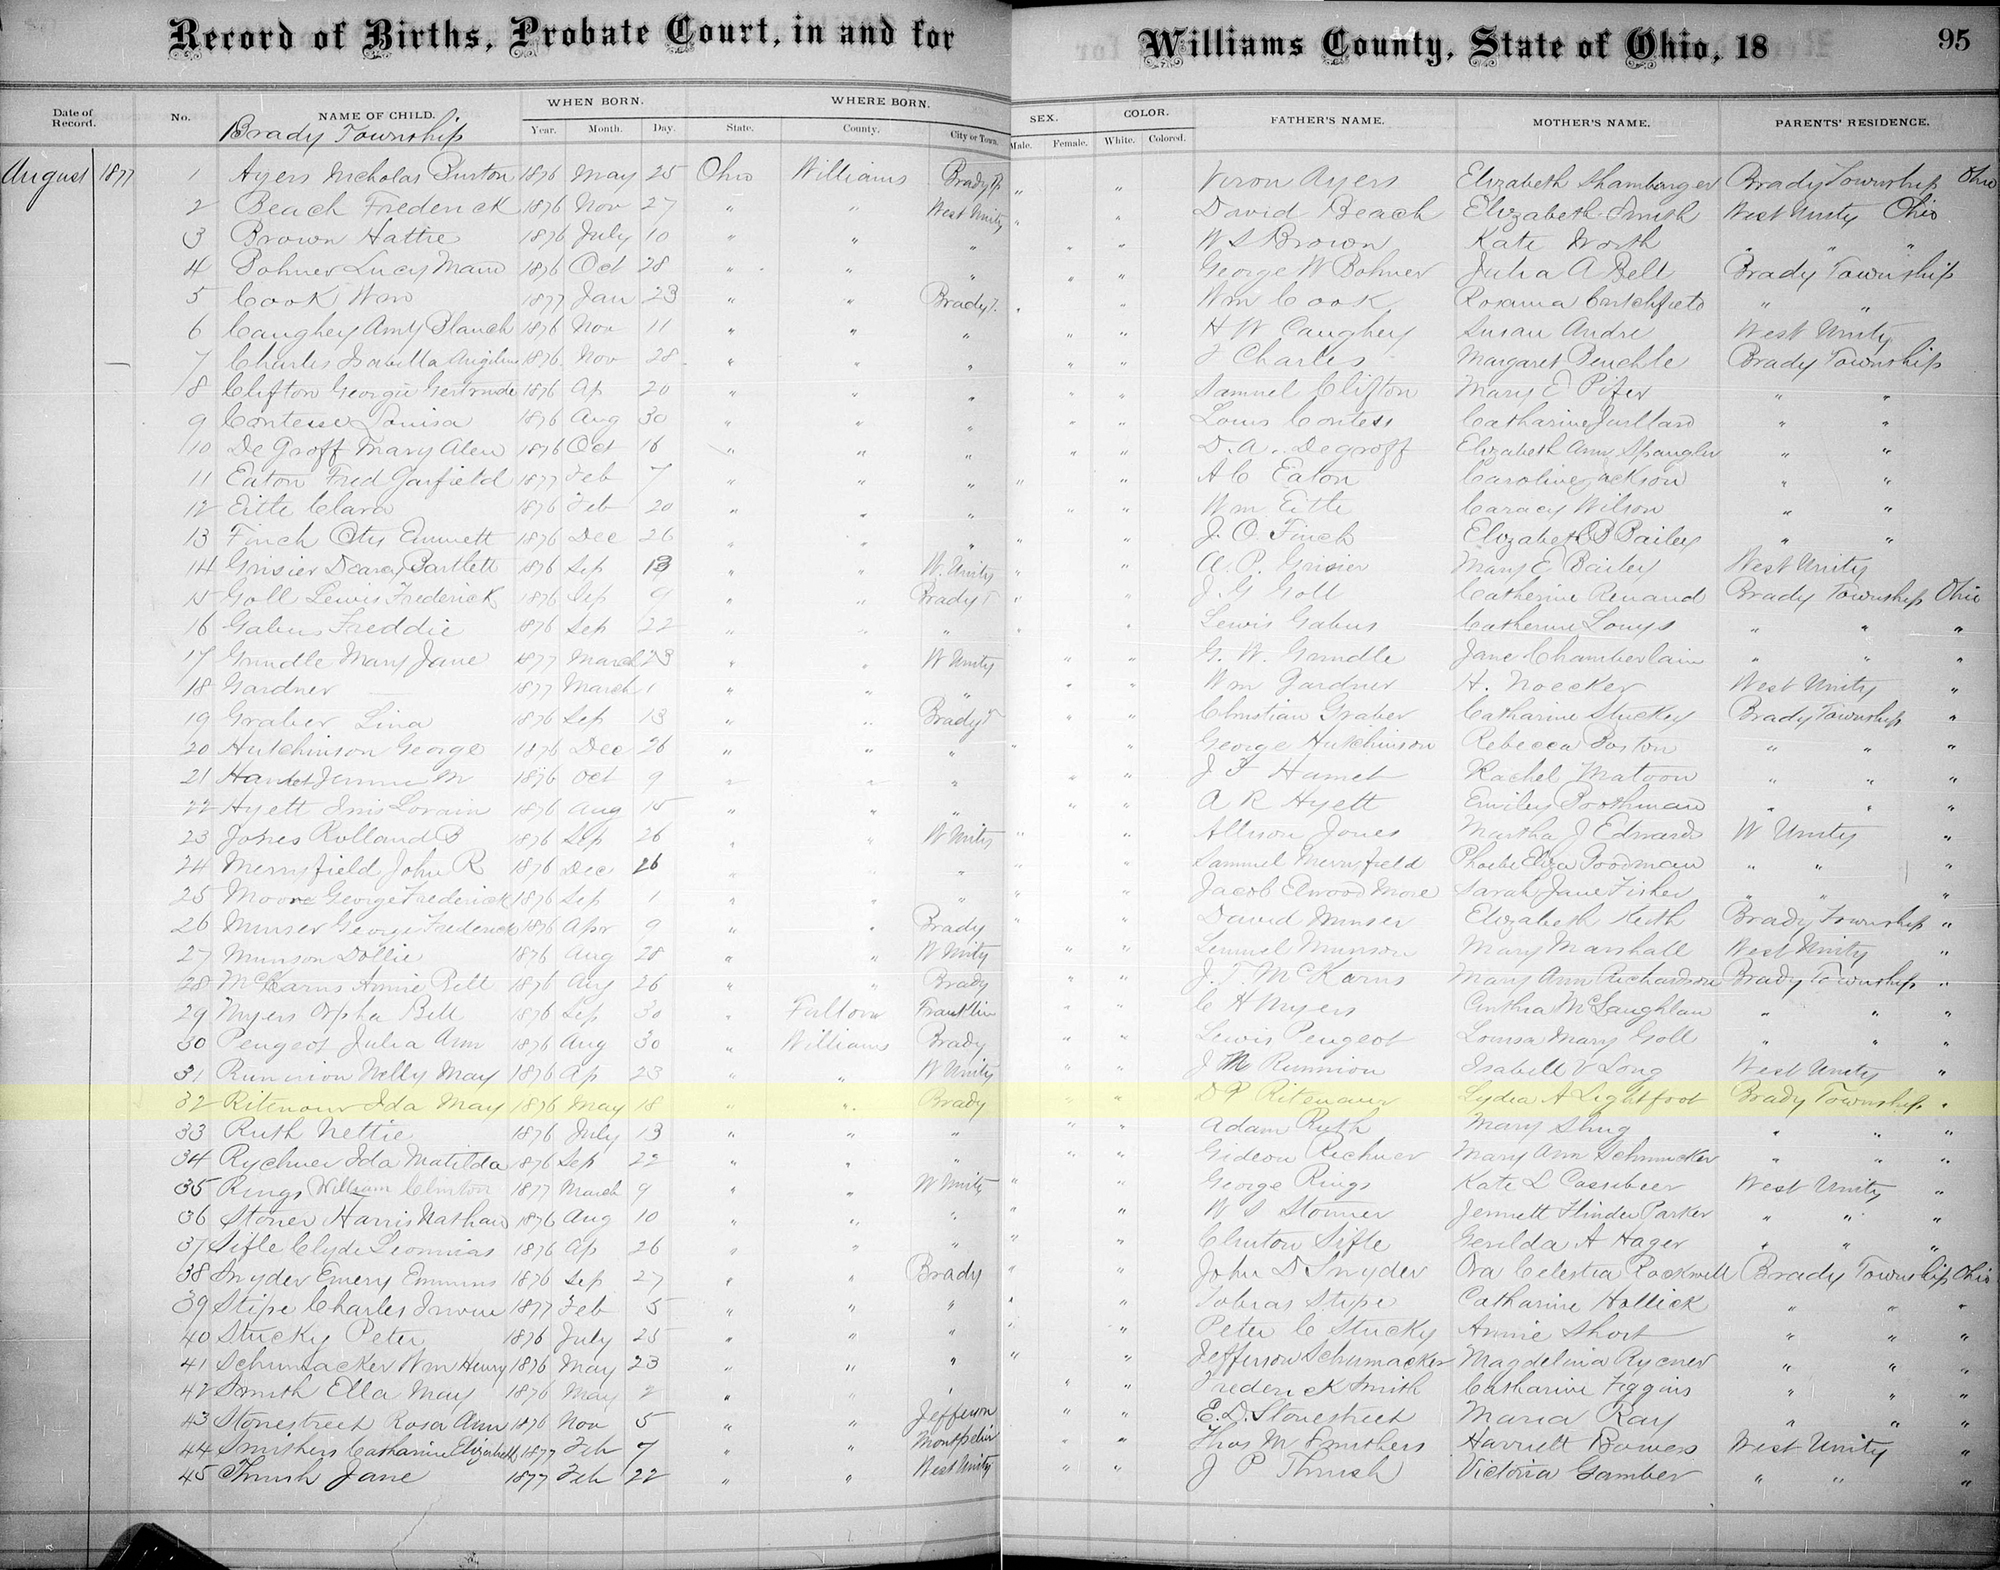 Record of Births, Probate Court, in and for Williams County, State of Ohio, 18 95
Date of Record. No. NAME OF CHILD. WHEN BORN. Year. Month. Day. WHERE BORN. State. County. City or Town. SEX. Male. Female. COLOR. White. Colored. FATHER'S NAME. MOTHER'S NAME. PARENTS' RESIDENCE.
Brady Township
August 1877 1 Ayers Nicholas Burton 1876 May 25 Ohio Williams Brady Tp " " Veron Ayers Elizabeth Shambarger Brady Township Ohio
2 Beach Frederick 1876 Nov 27 " " West Unity " " David Beach Elizabeth Thrush West Unity Ohio
3 Brown Hattie 1876 July 10 " " " " " W S Brown Kate Worth " " "
4 Bohner Lucy Maud 1876 Oct 28 " " " " " George W Bohner Julia A Belt Brady Township
5 Cook Wm 1877 Jan 23 " " Brady T. " " Wm Cook Rosanna Critchfield " "
6 Caughey Amy Blanch 1876 Nov 11 " " " " " H W Caughey Susan Andre West Unity
7 Charles Isabella 1876 Nov 28 " " " " " J Charles Margaret Brady Township
8 Clifton Georgie Gertrude 1876 Ap 20 " " " " " Samuel Clifton Mary E Pifer " "
9 Contesse Louisa 1876 Aug 30 " " " " " Louis Contess Catharine Juillard " "
10 De Groff Mary Alen 1876 Oct 16 " " " " " D. A. Degroff Elizabeth Ann Spangler " "
11 Eaton Fred Garfield 1877 Feb 7 " " " " " A C Eaton Caroline Jackson " "
12 Eitle Clara 1876 Feb 20 " " " " " Wm Eitle Caracy Wilson " "
13 Finch Otis Emmett 1876 Dec 26 " " " " " J. O. Finch Elizabeth B Bailey " "
14 Grisier Dearcy Bartlett 1876 Sep 13 " " W. Unity " " A. P. Grisier Mary E Bailey West Unity
15 Goll Lewis Frederick 1876 Sep 9 " " Brady T " " J. G Goll Catherine Renaud Brady Township Ohio
16 Gabus Freddie 1876 Sep 22 " " " " " Lewis Gabus Catherine Louys " " "
17 Grindle Mary Jane 1877 March 23 " " W Unity " " G. W. Grindle Jane Chamberlain " " "
18 Gardner — 1877 March 1 " " " " " Wm Gardner H. Noecker West Unity "
19 Graber Lina 1876 Sep 13 " " Brady T " " Christian Graber Catharine Stuckey Brady Township "
20 Hutchinson George 1876 Dec 26 " " " " " George Hutchinson Rebecca Boston " " "
21 Hamet Jennie M 1876 Oct 9 " " " " " J F Hamet Rachel Matoon " " "
22 Hyett Inis Lorain 1876 Aug 15 " " " " " A R Hyett Emiley Boothman " " "
23 Jones Rolland B 1876 Sep 26 " " W Unity " " Allison Jones Martha J Edwards W Unity "
24 Merryfield John R 1876 Dec 26 " " " " " Samuel Merryfield Phoebe Eliza Goodman " " "
25 Moore George Frederick 1876 Sep 1 " " " " " Jacob Elwood More Sarah Jane Fisher " " "
26 Munser George Frederick 1876 Apr 9 " " Brady " " David Munser Elizabeth Keith Brady Township "
27 Munson Dollie 1876 Aug 28 " " W Unity " " Lemuel Munson Mary Marshall West Unity "
28 McKarns Annie Bell 1876 Aug 26 " " Brady " " J. T. McKarns Mary Ann Richardson Brady Township "
29 Myers Orpha Bell 1876 Sep 30 " Fulton Franklin " " C H Myers Cinthia McLaughlan " " "
30 Peugeot Julia Ann 1876 Aug 30 " Williams Brady " " Lewis Peugeot Louisa Mary Goll " " "
31 Runnion Nelly May 1876 Ap 23 " " W Unity " " J M Runnion Isabell V Long West Unity "
32 Ritenour Ida May 1876 May 18 " " Brady " " D P Ritenaur Lydia A Lightfoot Brady Township "
33 Ruth Nettie 1876 July 13 " " " " " Adam Ruth Mary Shug " " "
34 Rychner Ida Matilda 1876 Sep 22 " " " " " Gideon Richner Mary Ann Schmucker " " "
35 Rings William Clinton 1877 March 9 " " W Unity " " George Rings Kate L Cassebeer West Unity "
36 Stoner Harris Nathan 1876 Aug 10 " " " " " W S Stonner Jennett Flinder Parker " " "
37 Sifle Clyde Leonnias 1876 Ap 26 " " " " " Clinton Sifle Gerilda A Hager " " "
38 Snyder Emery Emmins 1876 Sep 27 " " Brady " " John D Snyder Ora Celestia Rockwell Brady Township Ohio
39 Stipe Charles Irvine 1877 Feb 5 " " " " " Tobias Stipe Catharine Hollick " " "
40 Stucky Peter 1876 July 25 " " " " " Peter C Stucky Annie Short " " "
41 Schumacker Wm Henry 1876 May 23 " " " " " Jefferson Schumacker Magdelina Rycner " " "
42 Smith Ella May 1876 May 2 " " " " " Frederick Smith Catharine Figgins " " "
43 Stonestreet Rosa Ann 1876 Nov 5 " " Jefferson " " E. D. Stonestreet Maria Ray " " "
44 Smithers Catharine Elizabeth 1877 Feb 7 " " Montpelier " " Thos M Smithers Harriett Bowers West Unity "
45 Thrush Jane 1877 Feb 22 " " West Unity " " J P Thrush Victoria Gamber " " "